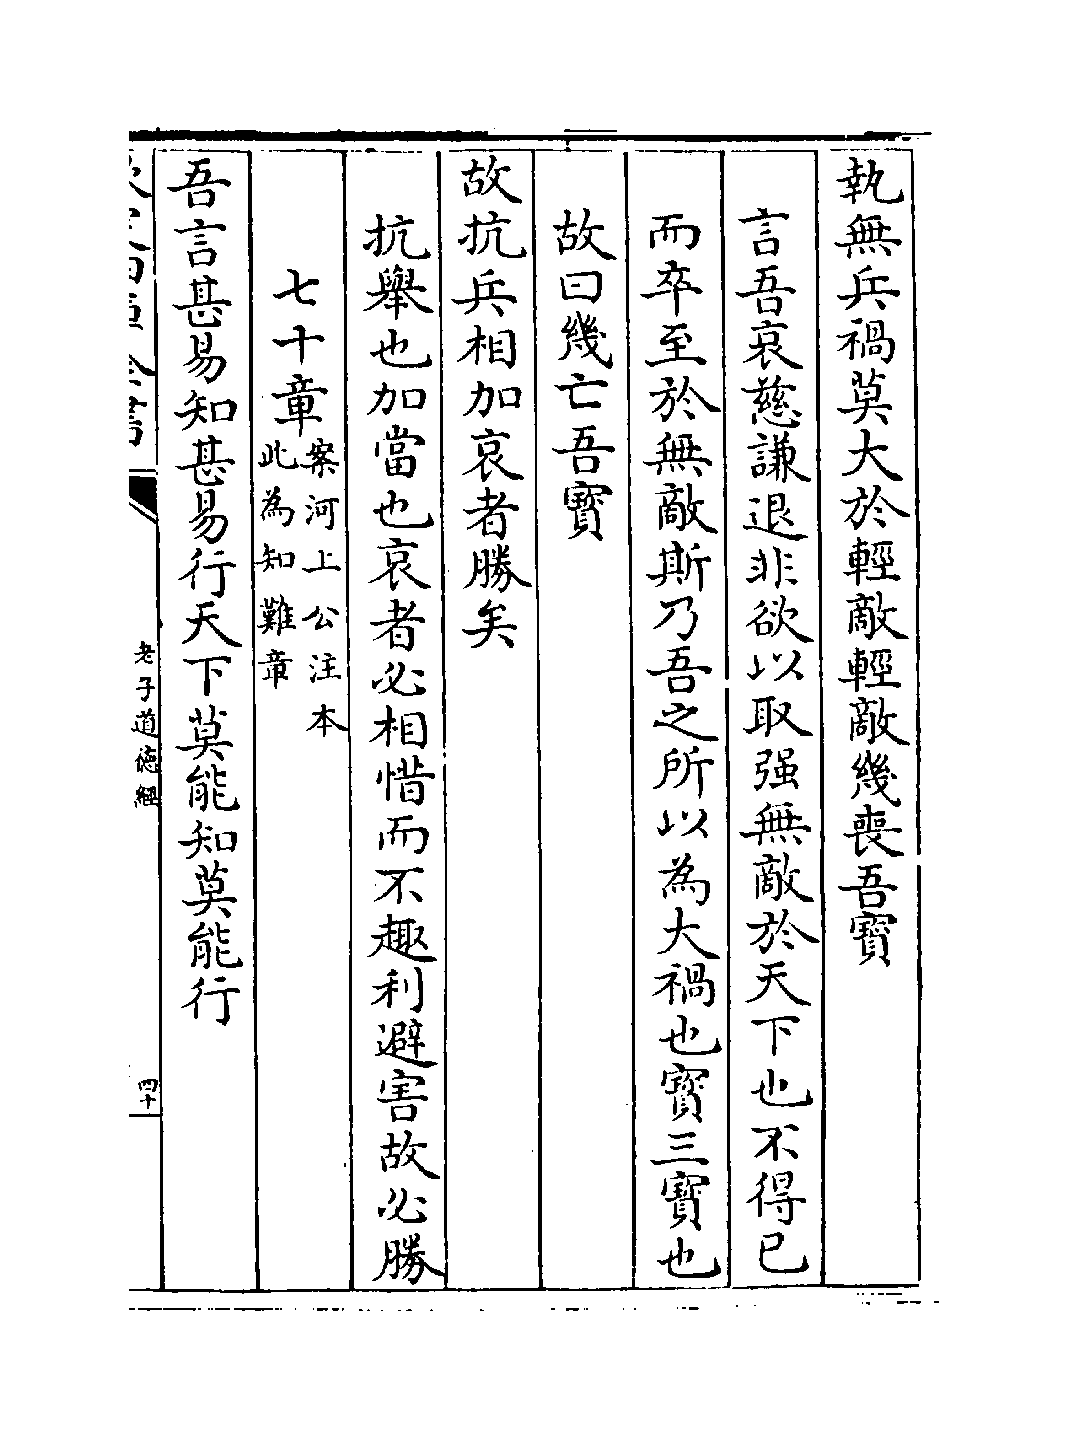 執無兵禍莫大於輕敵輕敵幾喪吾寳
言吾哀慈謙退非欲以取强無敵於天下也不得已
而卒至於無敵斯乃吾之所以為大禍也寳三寳也
故曰幾亡吾寳
故抗兵相加哀者勝矣
抗舉也加當也哀者必相惜而不趣利避害故必勝
七十章案河上公注本
此為知難章
吾言甚易知甚易行天下莫能知莫能行
老子道徳經
四十